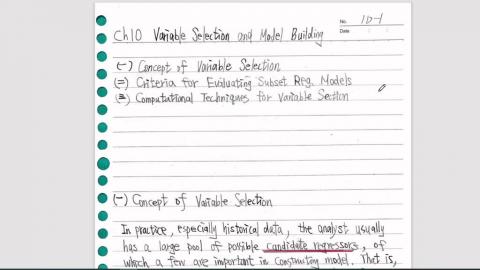 No. 10-1
Date
Ch10 Variable Selection and Model Building
(一) Concept of Variable Selection
(二) Criteria for Evaluating Subset Reg. Models
(三) Computational Techniques for Variable Section
(一) Concept of Variable Selection
In practice, especially historical data, the analyst usually
has a large pool of possible candidate regressors, of
which a few are important in constructing model. That is,